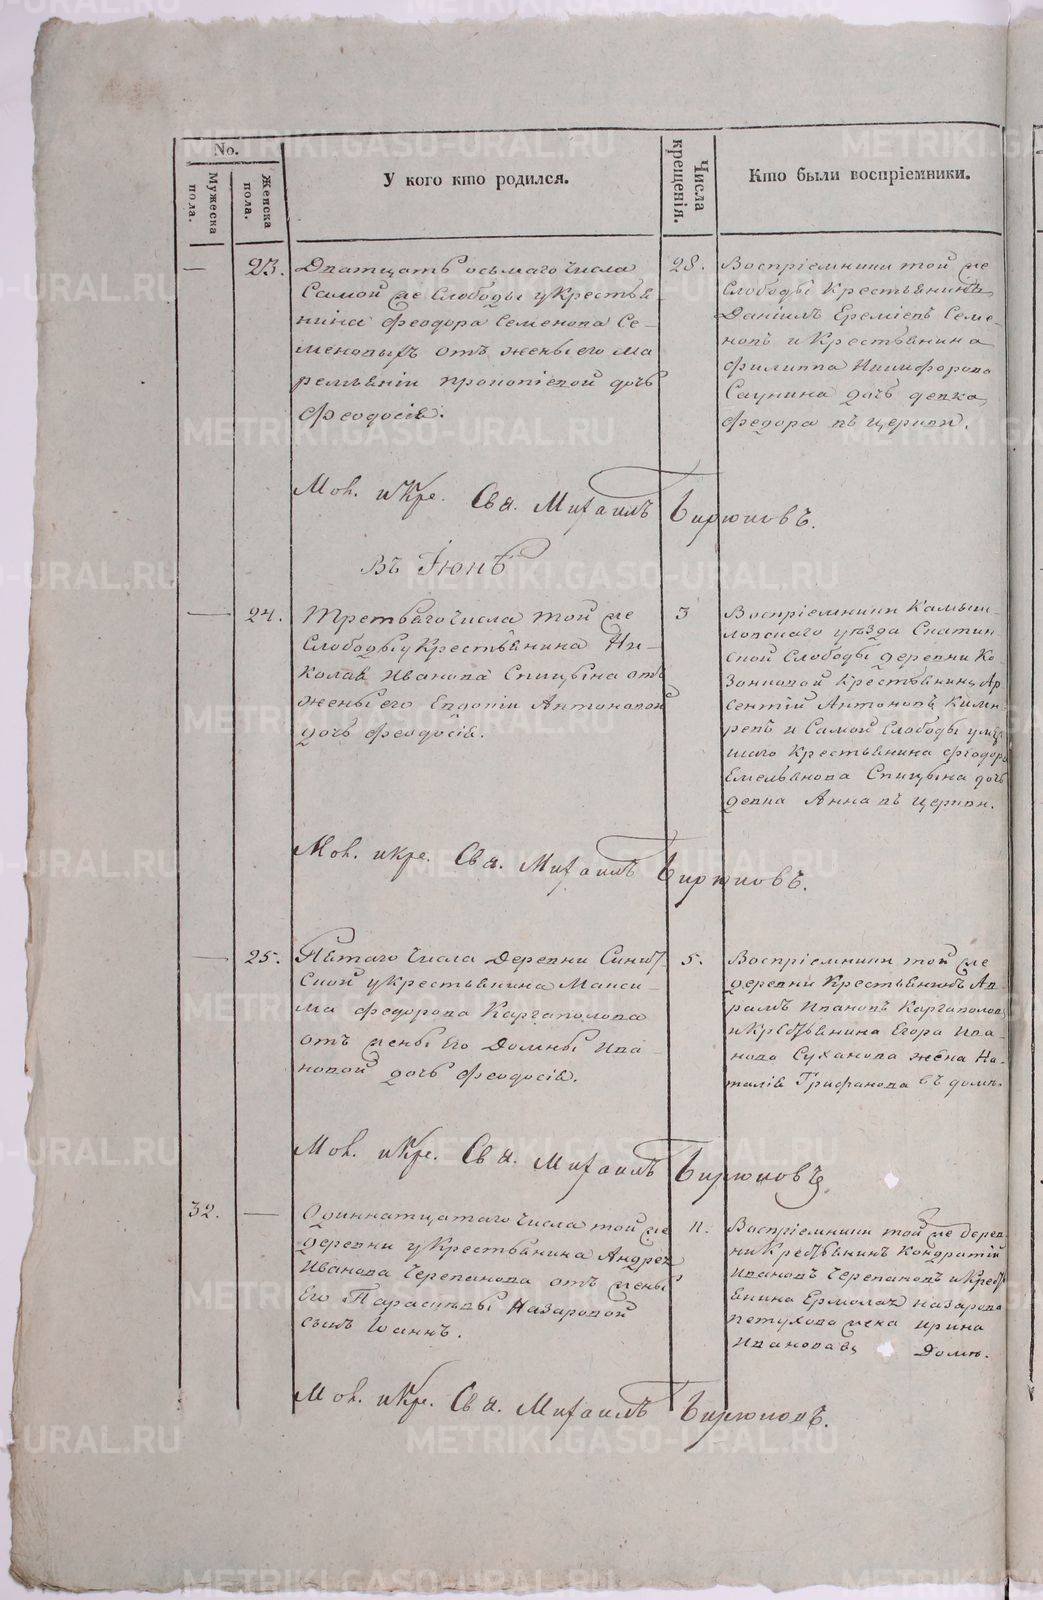 No.
Мужеска пола.
Женска пола.
У кого кто родился.
Числа крещенія.
Кто были воспріемники.
— 23.
Дватцать осьмаго числа
Самой же Слободы у Крестья
нина Феодора Семенова Се-
меновыхъ отъ жены его Ма
ремьяніи Прокопіевой дочь
Феодосія.
28.
Воспріемники той же
Слободы Крестьянинъ
Даніилъ Ереміевъ Семе-
новъ и Крестьянина
Филиппа Никифорова
Саунина дочь девка
Федора въ церкви.
Мол. и Кре. Свя. Михаилъ Бирюковъ.
Въ Іюнѣ
— 24.
Третьяго числа той же
Слободы у Крестьянина Ни-
колая Иванова Спицына отъ
жены его Евдокіи Антоновой
дочь Феодосія.
3
Воспріемники Камыш-
ловскаго уѣзда Скатин-
ской Слободы деревни Ко-
Крестьянинъ Ар
сентій Антоновъ
и Самой Слободы
Крестьянина Феодора
Емельянова Спицына дочь
девка Анна въ церкви.
Мол. и кре. Свя. Михаилъ Бирюковъ.
— 25.
Пятаго числа Деревни
ской у крестьянина Макси-
ма Федорова Каргаполова
отъ жены Его Домны Ива-
новой дочь Феодосія.
5.
Воспріемники той же
деревни Крестьянинъ Ав-
рамъ Ивановъ Каргаполовъ
и Крестьянина Егора Ива-
нова Суханова жена На-
талія Трифанова въ доме.
Мол. и Кре. Свя. Михаилъ Бирюковъ
32. —
Одиннатцатаго числа той же
деревни у Крестьянина Андрея
Иванова Черепанова отъ жены
Его Парасковьи Назаровой
сынъ Іоаннъ.
11.
Воспріемники той же дерев
ни Крестьянинъ Кондратій
Ивановъ Черепановъ и Крест
янина Ермолая Назарова
Петухова жена Ирина
Иванова въ Доме.
Мол. и Кре. Свя. Михаилъ Бирюковъ.
METRIKI.GASO-URAL.RU